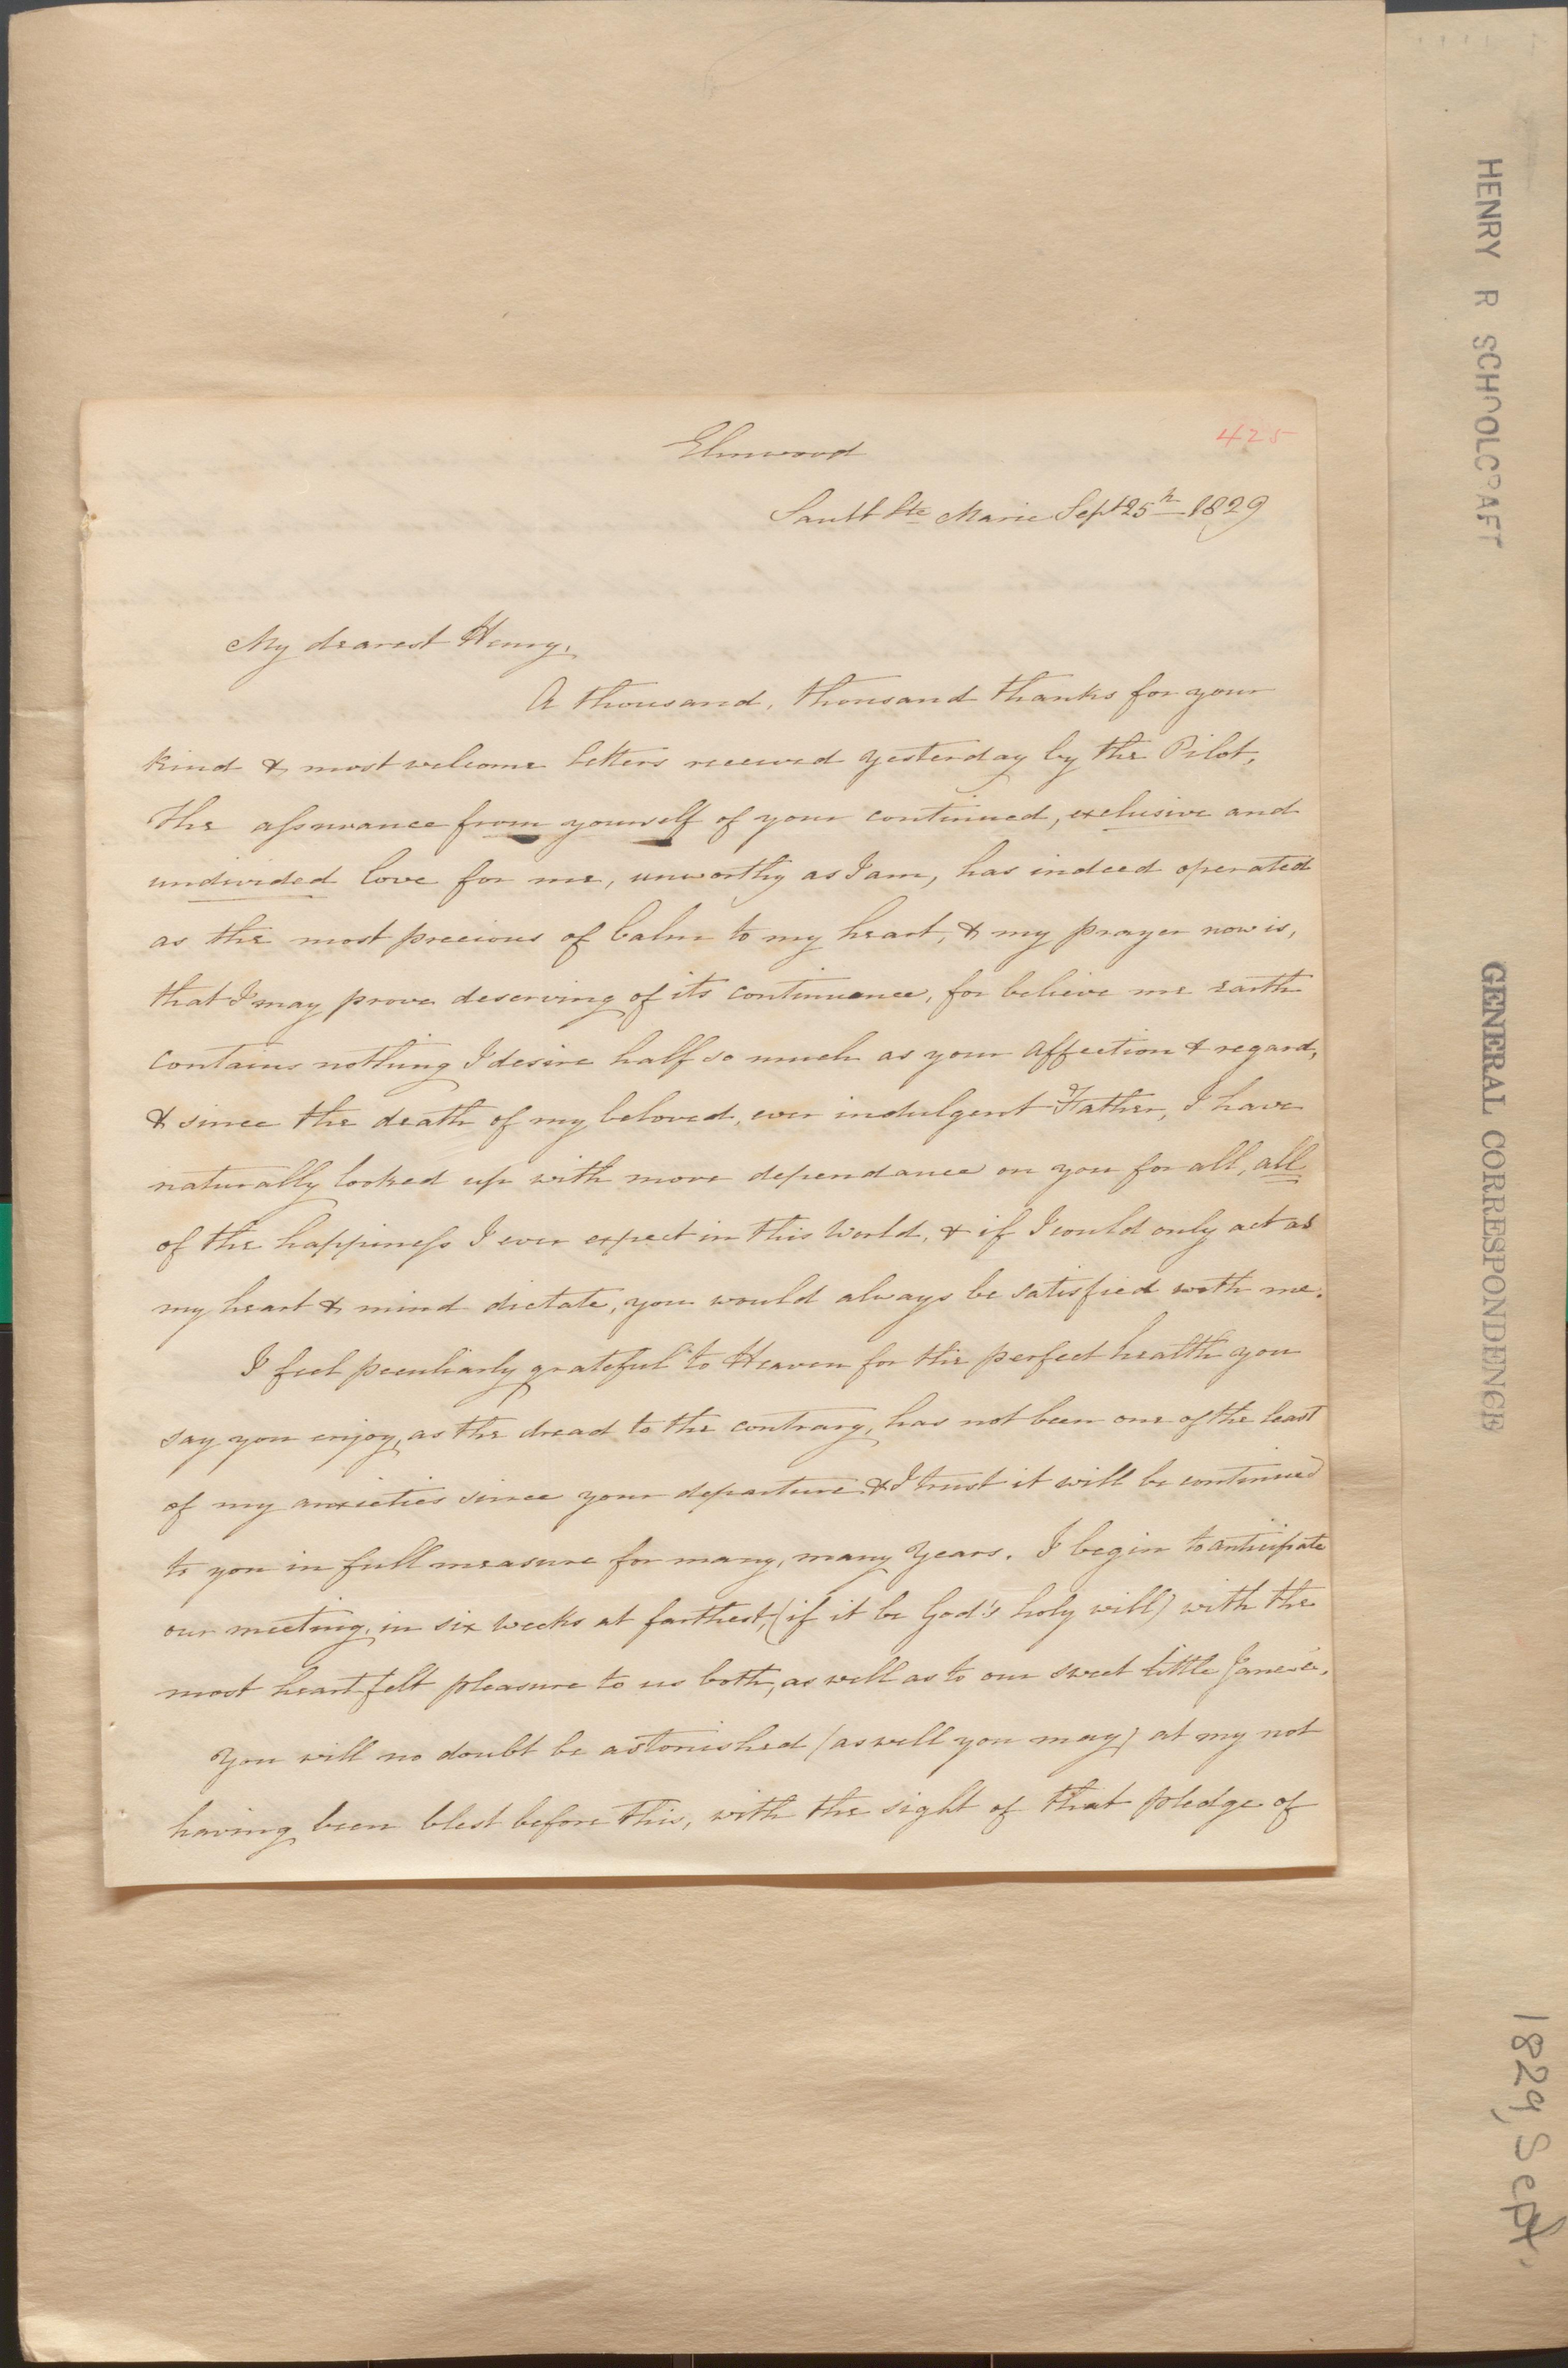 425
Elmwood
Sault Ste Marie Sept 25h 1829
My dearest Henry,
A thousand, thousand thanks for your
kind & most welcome letters received yesterday by the Pilot,
the assurance from yourself of your continued, exclusive and
undivided love for me, unworthy as I am, has indeed operated
as the most precious of balm to my heart, & my prayer now is,
that I may prove deserving of its continuence, for believe me earth
contains nothing I desire half so much as your affection & regard,
& since the death of my beloved, ever indulgent Father, I have
naturally looked up with more dependance on you for all, all
of the happiness I ever expect in this World, & if I could only act as
my heart & mind dictate, you would always be satisfied with me.
I feel peculiarly grateful to Heaven for the perfect health you
say you enjoy, as the dread to the contrary, has not been one of the least
of my anxieties since your departure & I trust it will be continued
to you in full measure for many, many Years. I begin to anticipate
our meeting, in six weeks at farthest, (if it be God's holy will) with the
most heartfelt pleasure to us both, as well as to our sweet little Janee.
You will no doubt be astonished (as well you may) at my not
having been blest before this, with the sight of that pledge of
HENRY R SCHOOLCRAFT
GENERAL CORRESPONDENCE
1829, Sept.